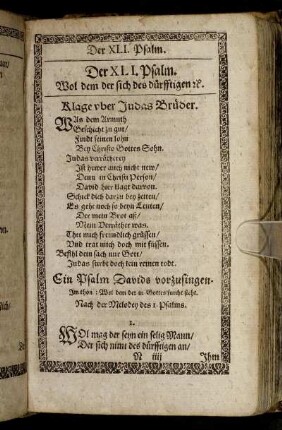 Der XLI. Psalm.
Der XLI. Psalm.
Wol dem der sich des dürfftigen ꝛc.
Klage vber Judas Brüder.
WAs dem Armuth
Geschicht zu gut/
Findt seinen lohn
Bey Christo Gottes Sohn.
Judas verrätherey
Ist hewer auch nicht new/
Denn in Christi Person/
David hier klagt davon.
Schick dich darein bey zeiten/
Es gehe noch so beyn Leuten/
Der mein Brot aß/
Mein Verräther was.
Thet mich freundlich grüssen/
Und trat mich doch mit füssen.
Befihl dein sach nur Gott/
Judas stirbt doch kein reinen todt.
Ein Psalm Davids vorzusingen.
Im thon: Wol dem der in Gottes furcht steht.
Nach der Melodey des 1. Psalms.
1.
WOl mag der seyn ein selig Mann/
Der sich nimt des dürfftigen an/
N iiij
Ihm